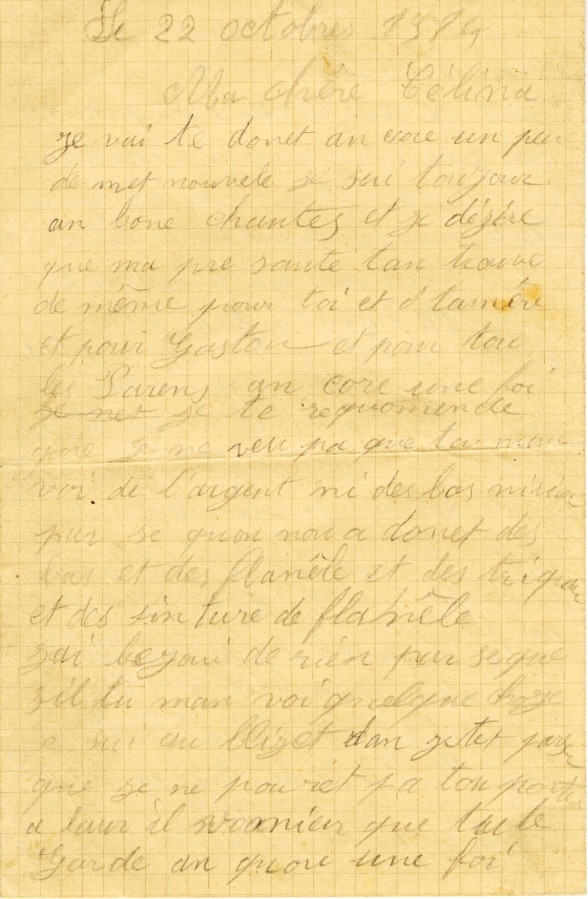 Le 22 octobres 1914
Ma chère Célina
je vai te donet an core un peu
de met nouvele je sui toujour
an bone chantes et je désire
que ma pre sante tan trouve
de même pour toi et d tamère
et pour Gaston et pour tou
les Parens an core une foi
je te requomende
que je ne veu pa que tu man
voi de l'argent ni des bas ni rien
par se quon nou a donet des
bas et des flanèle et des triquau
et des sinture de flanèle
jai bezoui de rien par se que
sil tu man voi quelque choze
dan jetet par
que je ne pouret pa tou porte
a laur il vo mieux que tu le
Garde an quore une foi